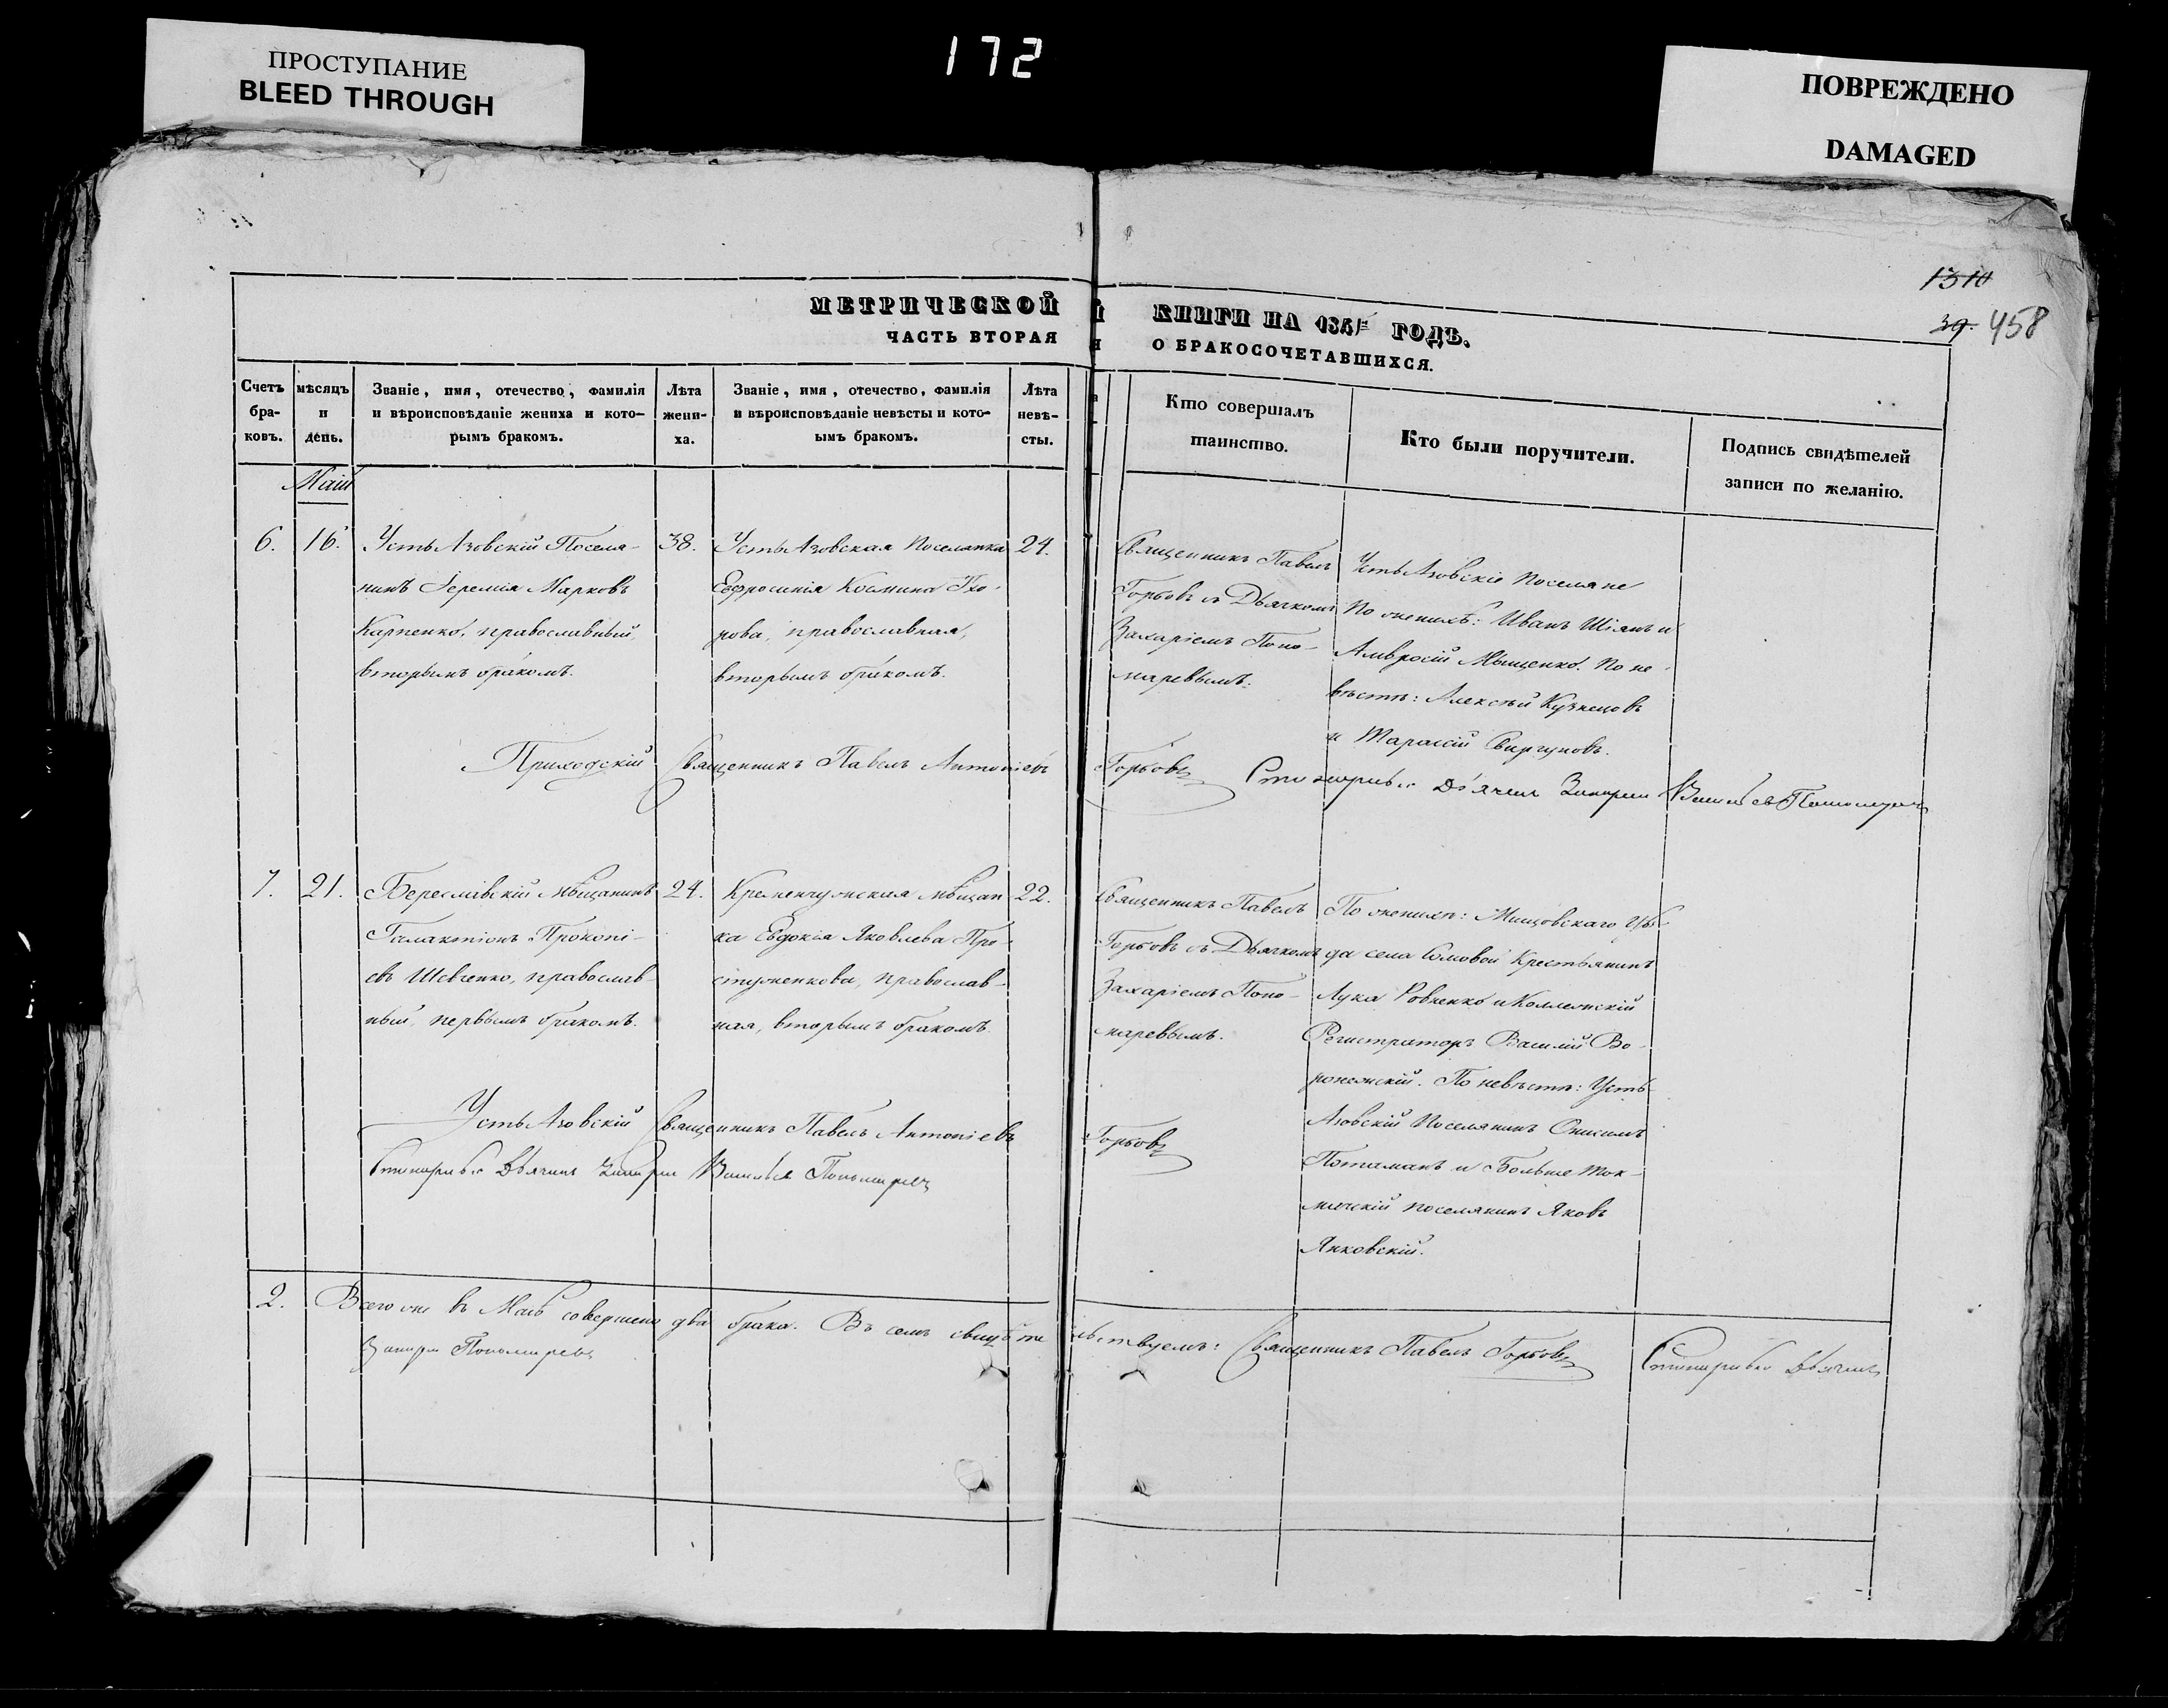 ПРОСТУПАНИЕ
BLEED THROUGH
172
ПОВРЕЖДЕНО
DAMAGED
1310
39. 458
МЕТРИЧЕСКОЙ КНИГИ НА 1841 ГОДЪ.
ЧАСТЬ ВТОРАЯ О БРАКОСОЧЕТАВШИХСЯ.
Счетъ
бра-
ковъ.
мѣсяцъ
и
день.
Званіе, имя, отечество, фамилія
и вѣроисповѣданіе жениха и кото-
рымъ бракомъ.
Лѣта
жени-
ха.
Званіе, имя, отечество, фамилія
и вѣроисповѣданіе невѣсты и кото-
ымъ бракомъ.
Лѣта
невѣ-
сты.
Кто совершалъ
таинство.
Кто были поручители.
Подпись свидѣтелей
записи по желанію.
Маій
6.
16.
Усть Азовскій Поселя-
нинъ Іеремія Марковъ
Карпенко, православный,
вторымъ бракомъ.
38.
Усть Азовская Поселянка
Евфросинія Космина
рова, православная,
вторымъ бракомъ.
24.
Священникъ Павелъ
Горбовъ съ Дьячкомъ
Захаріемъ Поно-
маревымъ.
Усть Азовскіе Поселяне
По женихѣ: Иванъ Шіянъ и
Амвросій Мыщенко. По не-
вѣстѣ: Алексѣй Кузнецовъ
и Тарасій Свиргуновъ.
Приходскій Священникъ Павелъ Антоніевъ Горбовъ
7.
21.
Бериславскій мѣщанинъ
Галактіонъ Прокопі-
евъ Шевченко, православ-
ный, первымъ бракомъ.
24.
Кременчугская мѣщан
ка Евдокія Яковлева Про-
ступенкова, православ-
ная, вторымъ бракомъ.
22.
Священникъ Павелъ
Горбовъ съ Дьячкомъ
Захаріемъ Поно-
маревымъ.
По женихѣ: Мищовскаго Уѣз-
да села Сомовой Крестьянинъ
Лука Ровненко и Коллежскій
Регистраторъ Василій Во-
ронежскій. По невѣстѣ: Усть-
Азовскій Поселянинъ Онисимъ
Потаманъ и Больше Ток-
мачскій поселянинъ Яковъ
Янковскій.
Усть Азовскій Священникъ Павелъ Антоніевъ Горбовъ
2.
Всего же въ Маѣ совершено два брака. Въ семъ свидѣтельствуемъ: Священникъ Павелъ Горбовъ